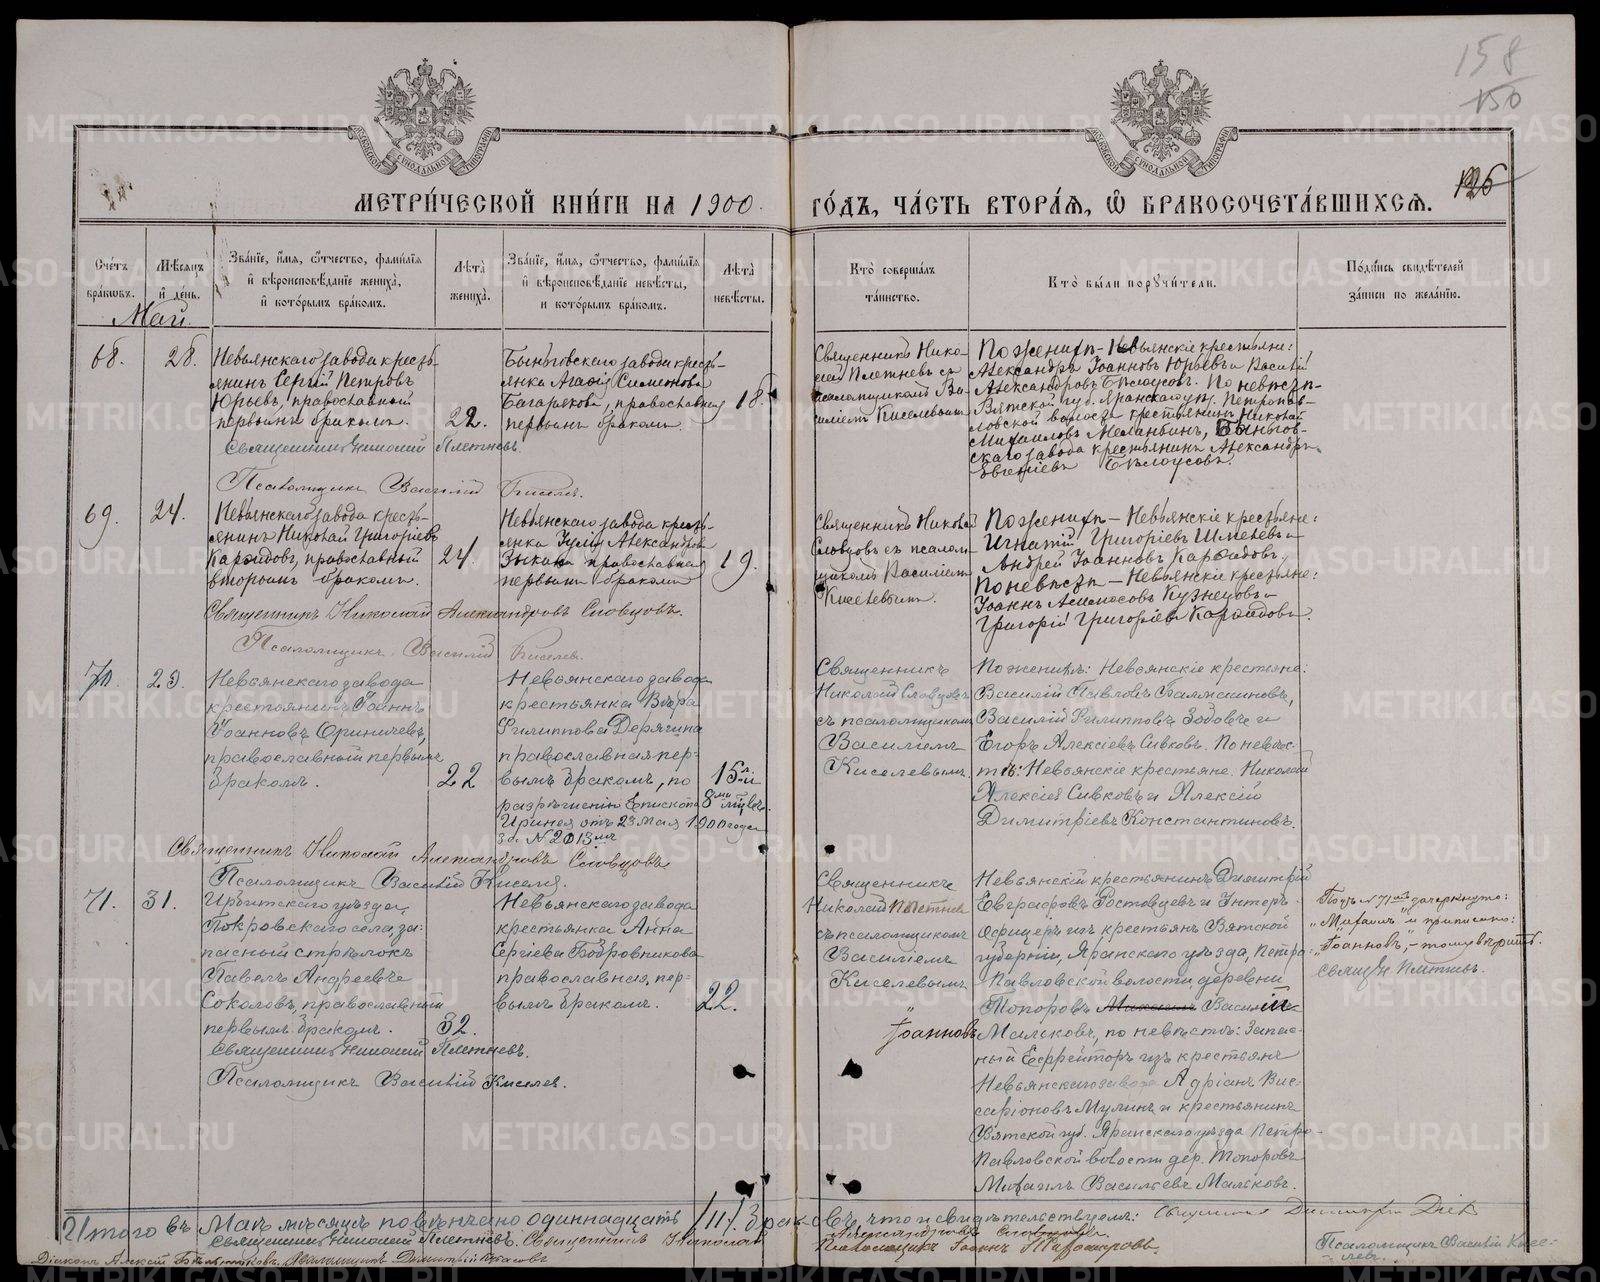 158
150
126
МЕТРИ́ЧЕСКОЙ КНИ́ГИ НА 1900.
ГО́ДЪ, ЧА́СТЬ ВТОРА́Я, Ѡ БРАКОСОЧЕТА́ВШИХСЯ.
Сче́тъ бра́ковъ.
Мѣ́сяцъ и де́нь.
Зва́нїе, и́мя, ѻ́тчество, фами́лїя и вѣроисповѣ́данїе жениха̀, и кото́рымъ бра́комъ.
Лѣта̀ жениха̀.
Зва́нїе, и́мя, ѻ́тчество, фами́лїя и вѣроисповѣ́данїе невѣ́сты, и кото́рымъ бра́комъ.
Лѣта̀ невѣ́сты.
Кто̀ соверша́лъ та́инство.
Кто̀ бы́ли поручи́тели.
По́дпись свидѣ́телей за́писи по жела́нїю.
Май.
68.
28.
Невьянскаго завода кресть-
янинъ Сергій Петровъ
Юрьевъ, православный
первымъ бракомъ.
22.
Быньговскаго завода кресть-
янка Агафія Симеонова
Багарякова, православная
первымъ бракомъ.
18.
Священникъ Нико-
лай Плетневъ съ
псаломщикомъ Ва-
силіемъ Киселевымъ
По женихѣ - Невьянскіе крестьяне:
Александръ Іоанновъ Юрьевъ и Василій
Александровъ Бѣлоусовъ. По невѣстѣ -
Вятской губ. Яранскаго у. Петропав-
ловской волости крестьянинъ Николай
Михаиловъ Меланьинъ, Быньгов-
скаго завода крестьянинъ Александръ
Евгеніевъ Бѣлоусовъ.
Священникъ Николай Плетневъ.
Псаломщикъ Василій Киселев.
69.
24.
Невьянскаго завода кресть-
янинъ Николай Григоріевъ
православный
вторымъ бракомъ.
24.
Невьянскаго завода кресть-
янка Юлія Александрова
Зыкова православная
первымъ бракомъ
19.
Священникъ Николай
Словцовъ съ псалом-
щикомъ Василіемъ
Киселевымъ
По женихѣ - Невьянскіе крестьяне:
Игнатій Григоріевъ Шмелевъ и
Андрей Іоанновъ
По невѣстѣ - Невьянскіе крестьяне:
Іоаннъ Кузнецовъ и
Григорій Григоріевъ
Священникъ Николай Александровъ Словцовъ.
Псаломщикъ Василій Киселев.
70.
23.
Невьянскаго завода
крестьянинъ Іоаннъ
Іоанновъ Ориничевъ,
православный первымъ
бракомъ.
22
Невьянскаго завода
крестьянка Вѣра
Филиппова Дерягина
православная пер-
вымъ бракомъ, по
разрѣшенію Епископа
Иринея отъ 23 мая 1900 года
за № 2013мъ
15 л. и
8ми мѣс.
Священникъ
Николай Словцовъ
съ псаломщикомъ
Василіемъ
Киселевымъ
По женихѣ: Невьянскіе крестьяне:
Василій Павловъ
Василій Филипповъ Зобовъ и
Егоръ Алексіевъ Сивковъ. По невѣс-
тѣ: Невьянскіе крестьяне: Николай
Алексіевъ Сивковъ и Алексій
Димитріевъ Константиновъ.
Священникъ Николай Александровъ Словцовъ
Псаломщикъ Василій Киселев.
71.
31.
Ирбитскаго уѣзда,
Покровскаго села, за-
пасный стрѣлокъ
Павелъ Андреевъ
Соколовъ, православный
первымъ бракомъ.
32.
Невьянскаго завода
крестьянка Анна
Сергіева Бобровникова
православная, пер-
вымъ бракомъ.
22.
Священникъ
Николай Плетневъ
съ псаломщикомъ
Василіемъ
Киселевымъ
„Іоанновъ
Невьянскій крестьянинъ Димитрій
Евграфовъ Ростовцевъ и Унтеръ-
офицеръ изъ крестьянъ Вятской
губерніи, Яранскаго уѣзда, Петро-
Павловской волости деревни
Топоровъ Михаилъ Василій
Мальковъ, по невѣстѣ: Запас-
ный Ефрейторъ изъ крестьянъ
Невьянскаго завода Адріанъ Вис-
саріоновъ Мулинъ и крестьянинъ
Вятской губ. Яранскаго уѣзда Петро-
Павловской волости дер. Топоровъ
Михаилъ Васильевъ Мальковъ.
Подъ № 71мъ зачеркнуто:
„Михаилъ" и приписано:
„Іоанновъ", - тому вѣрить.
Священ. Плетневъ.
Священникъ Николай Плетневъ.
Псаломщикъ Василій Киселев.
Итого въ Маѣ мѣсяцѣ повѣнчано одиннадцать /11/. браковъ, что и свидѣтельствуемъ: Священникъ Димитрій
Священникъ Николай Плетневъ. Священникъ Николай Александровъ Словцовъ.
Діаконъ Алексій Псаломщикъ Димитрій
Псаломщикъ Іоаннъ
Псаломщикъ Василій Кисе-
лев.